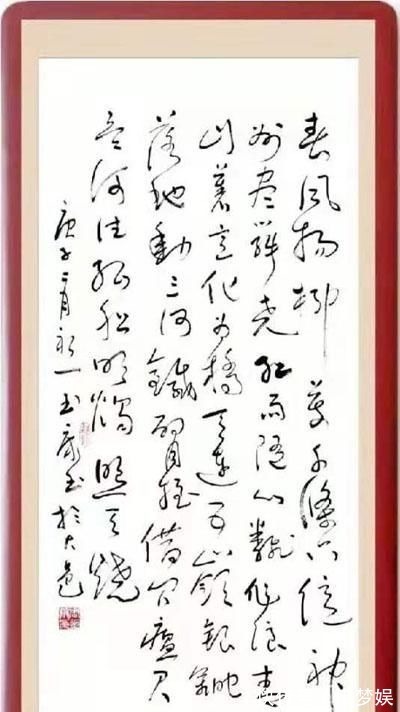 春风杨柳萬千條六億神
州尽舜尧红雨随心翻作浪青
山著意化为橋天連五嶺銀鋤
落地動三河鐵臂摇借问瘟君
欲何往纸船明燭照天燒
庚子二月初一玉书於大邑
梦娱